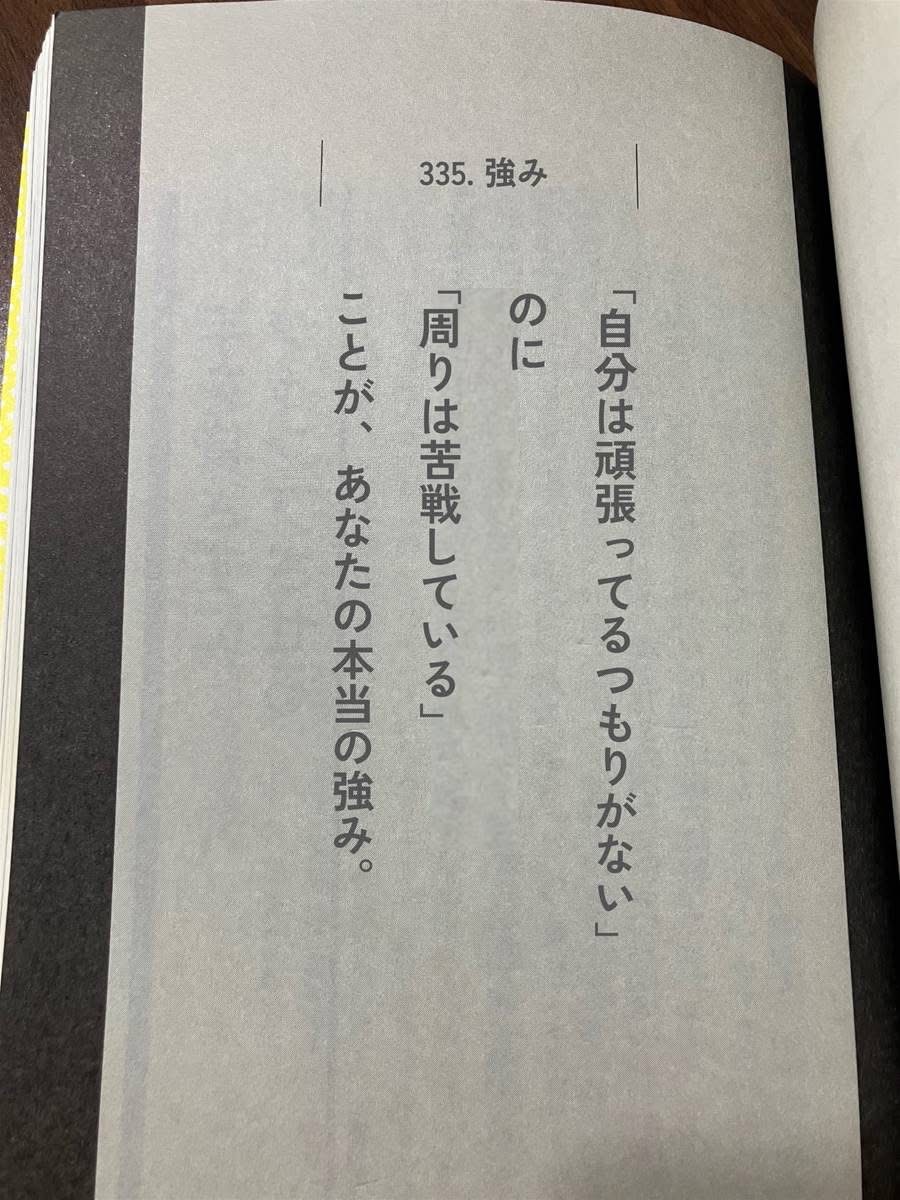 335. 強み
「自分は頑張ってるつもりがない」
のに
「周りは苦戦している」
ことが、あなたの本当の強み。